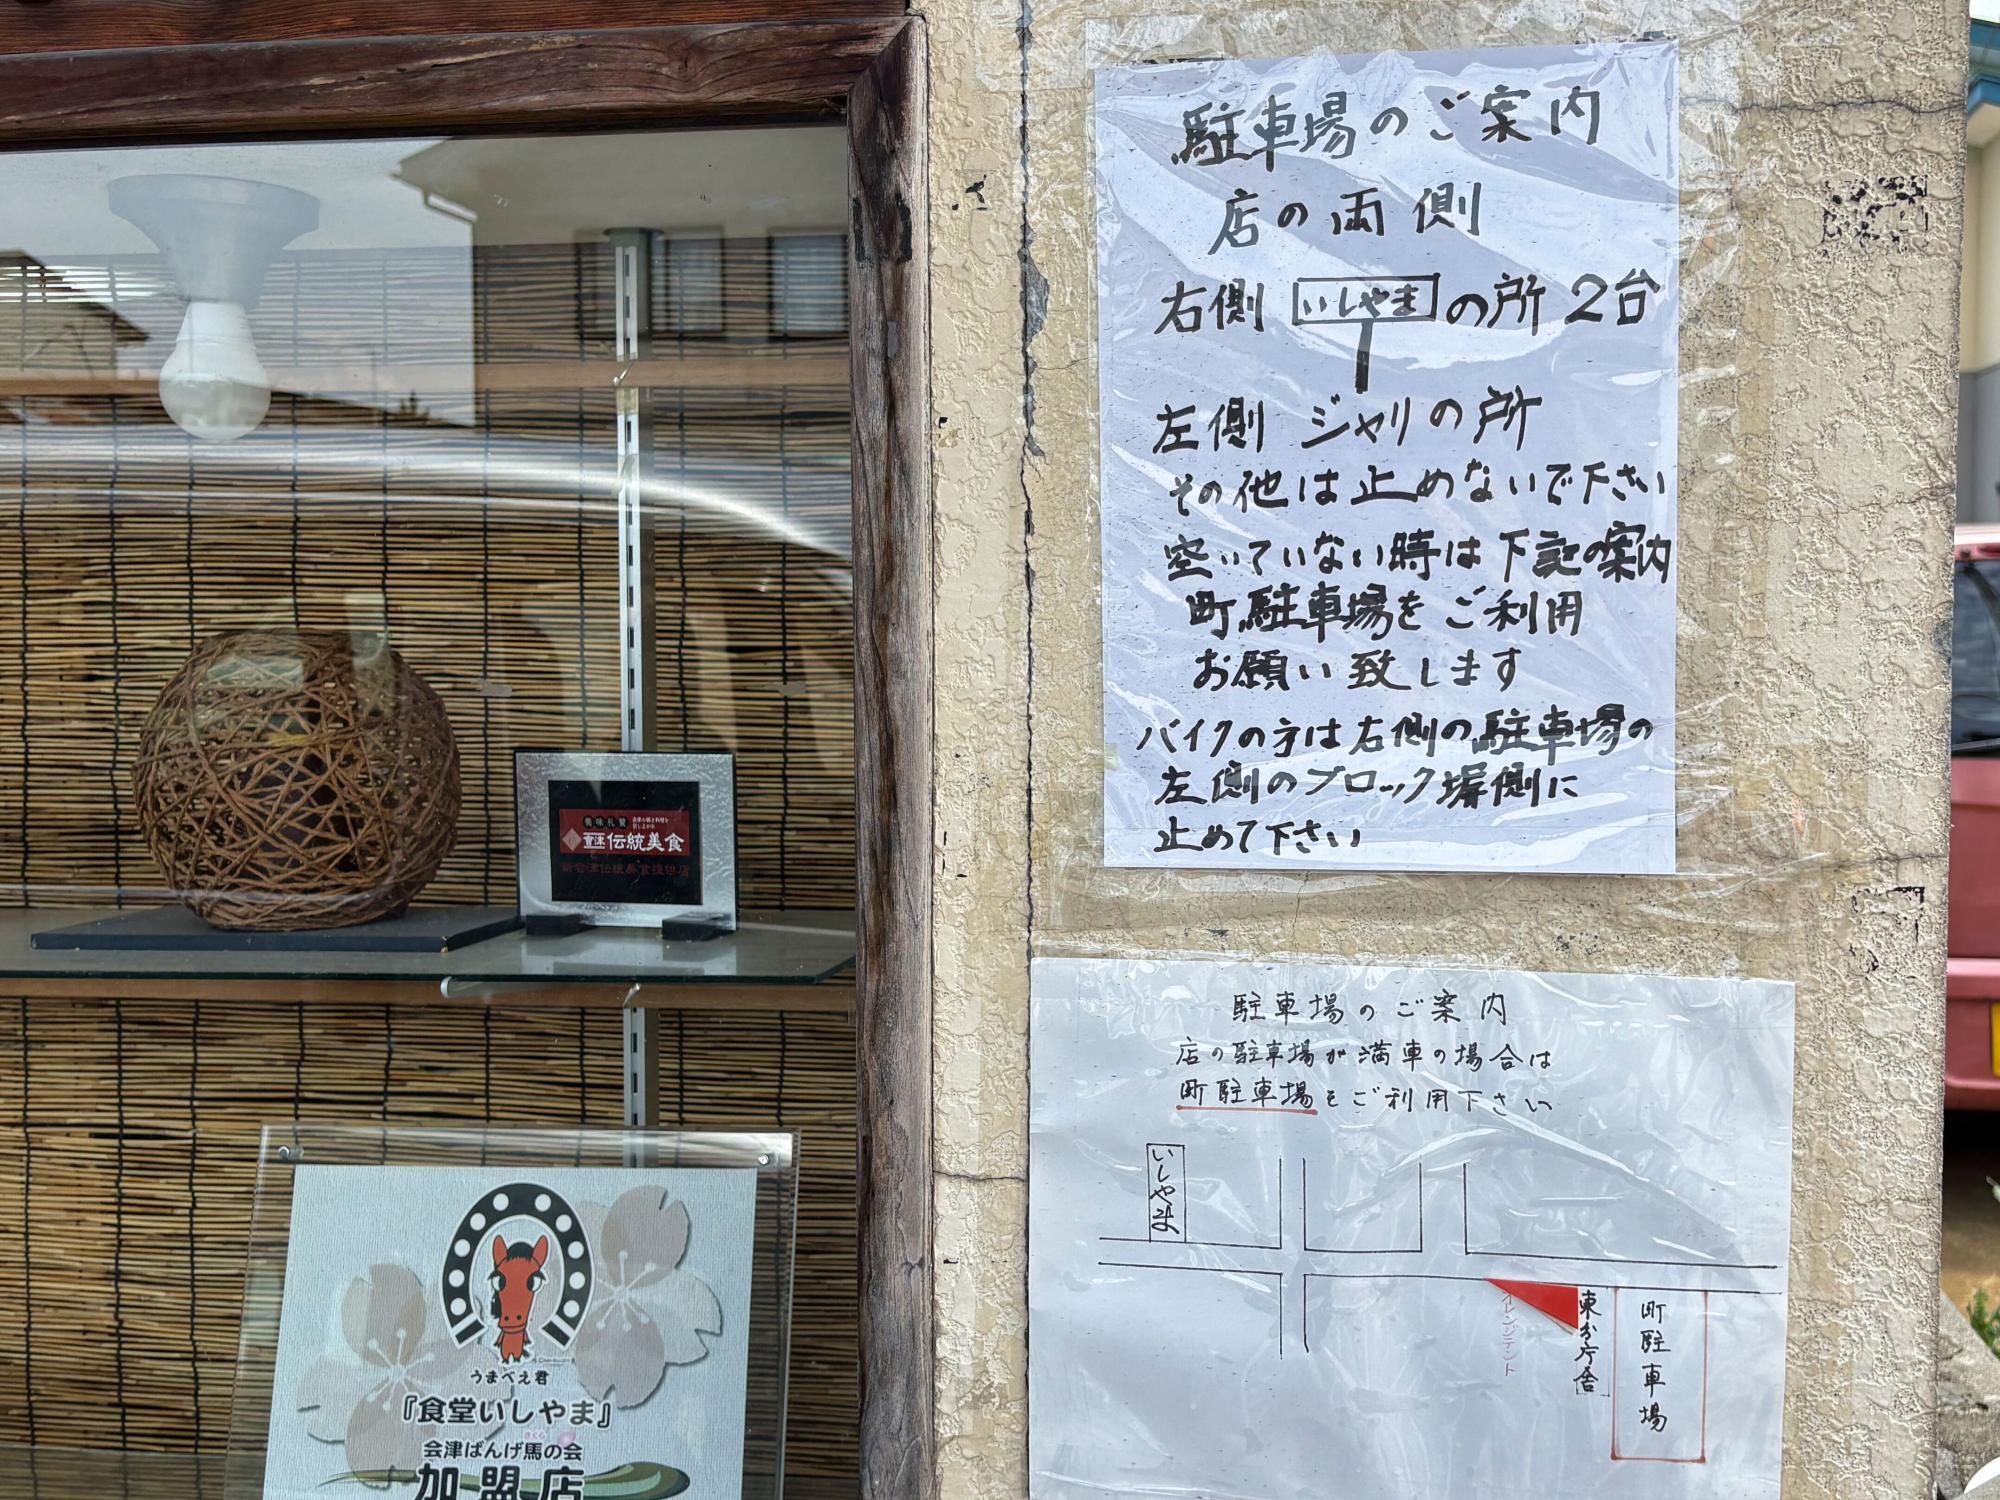 駐車場のご案内
店の両側
右側 いしやま の所 2台
左側 ジャリの所
その他は止めないで下さい
空いていない時は下記の案内
町駐車場をご利用
お願い致します
バイクの方は右側の駐車場の
左側のブロック塀側に
止めて下さい
駐車場のご案内
店の駐車場が満車の場合は
町駐車場をご利用下さい
いしやま
オレンジテント
東分庁舎
町駐車場
美味礼賛
会津 伝統美食
新会津伝統美食提供店
うまべえ君
『食堂いしやま』
さくら
会津ばんげ馬の会
加盟店